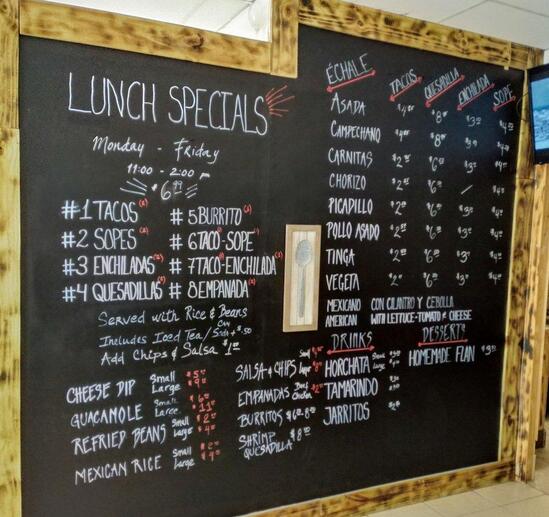 LUNCH SPECIALS
Monday - Friday
11:00 - 2:00 pm
$6.99
#1 TACOS (3)
#2 SOPES (2)
#3 ENCHILADAS (3)
#4 QUESADILLAS (2)
#5 BURRITO (1)
#6 TACO-SOPE (1)
#7 TACO-ENCHILADA
#8 EMPANADA
Served with Rice & Beans
Includes Iced Tea/ Can Soda + $.50
Add Chips & Salsa $1.00
CHEESE DIP Small $5 Large $9
GUACAMOLE Small $6 Large $11
REFRIED BEANS Small $2 Large $4
MEXICAN RICE Small $2 Large $4
SALSA & CHIPS Small Large
EMPANADAS Beef Chicken $2
BURRITOS $6-8.00
SHRIMP QUESADILLA $8.00
ÉCHALE TACOS QUESADILLA ENCHILADA SOPE
ASADA $8 $3
CAMPECHANO $8 $3
CARNITAS $6 $3
CHORIZO $6 / $4
PICADILLO $2 $6 $3 $4
POLLO ASADO $2 $6 $3 $4
TINGA $2 $6 $3 $4
VEGETA $6 $3 $4
MEXICANO CON CILANTRO Y CEBOLLA
AMERICAN WITH LETTUCE-TOMATO & CHEESE
DRINKS
HORCHATA Small Large
TAMARINDO
JARRITOS
DESSERTS
HOMEMADE FLAN